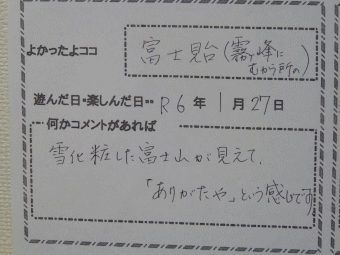 よかったよココ
富士見台(霧ヶ峰に
むかう所の)
遊んだ日・楽しんだ日・・ R6年 1月27日
何かコメントがあれば
雪化粧した富士山が見えて、
「ありがたや」という感じです